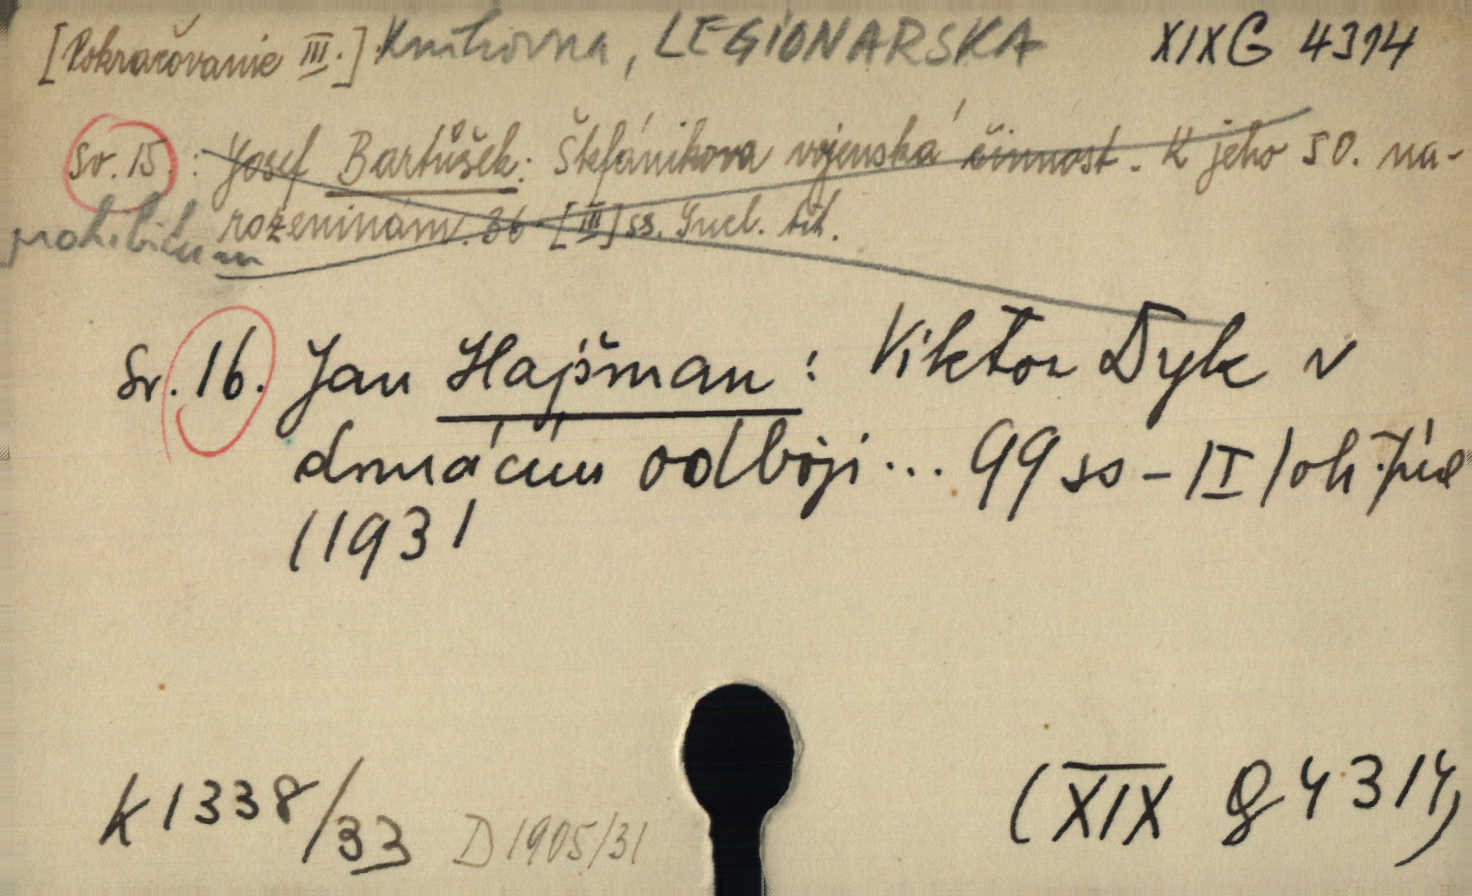 [Pokračovanie III.] Knihovna, LEGIONARSKA XIX G 4314
Sv. 15. : Josef Bartůšek: Štefánikova vojenská činnost. K jeho 50. na-
rozeninám. 86 - [III] ss. Incl. tit.
prohibitum
Sv. 16. Jan Hajšman : Viktor Dyk v
domácím odboji ... 99 ss - II
(1931
K 1338/33 D 1905/31 (XIX G 4314)